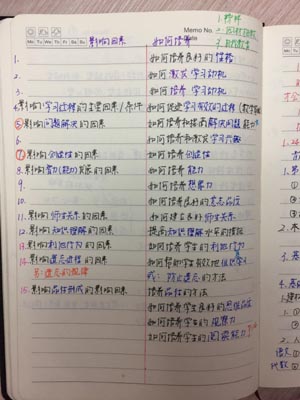 1.性格
2.
3.
Memo No.
Mo Tu We Th Fr Sa Su
Date
影响因素 如何培养
1. 如何培养良好的性格
2. 如何激发学习动机
3. 如何培养学习动机
4.影响学习迁移的主要因素/条件 如何促进学习有效的迁移(教学
⑤影响问题解决的因素 如何培养和提高解决问题能力
6. 如何培养和激发学习兴趣
⑦影响创造性的因素 如何培养创造性
8.影响智力能力发展的因素 如何培养能力
9. 如何培养想象力
10. 如何培养良好的意志品质
11.影响师生关系的因素 如何建立良好师生关系
12.影响知识理解的因素 提高知识理解水平的措施
13.影响利他行为的因素 如何培养学生的利他行为
14.影响遗忘进程的因素 如何帮助学生有效地组织复习
另:遗忘的规律 或:防止遗忘的方法
15.影响品德形成的因素 培养品德的方法
如何培养学生良好的思想品德
如何培养学生的观察力
如何培养学生的阅读能力